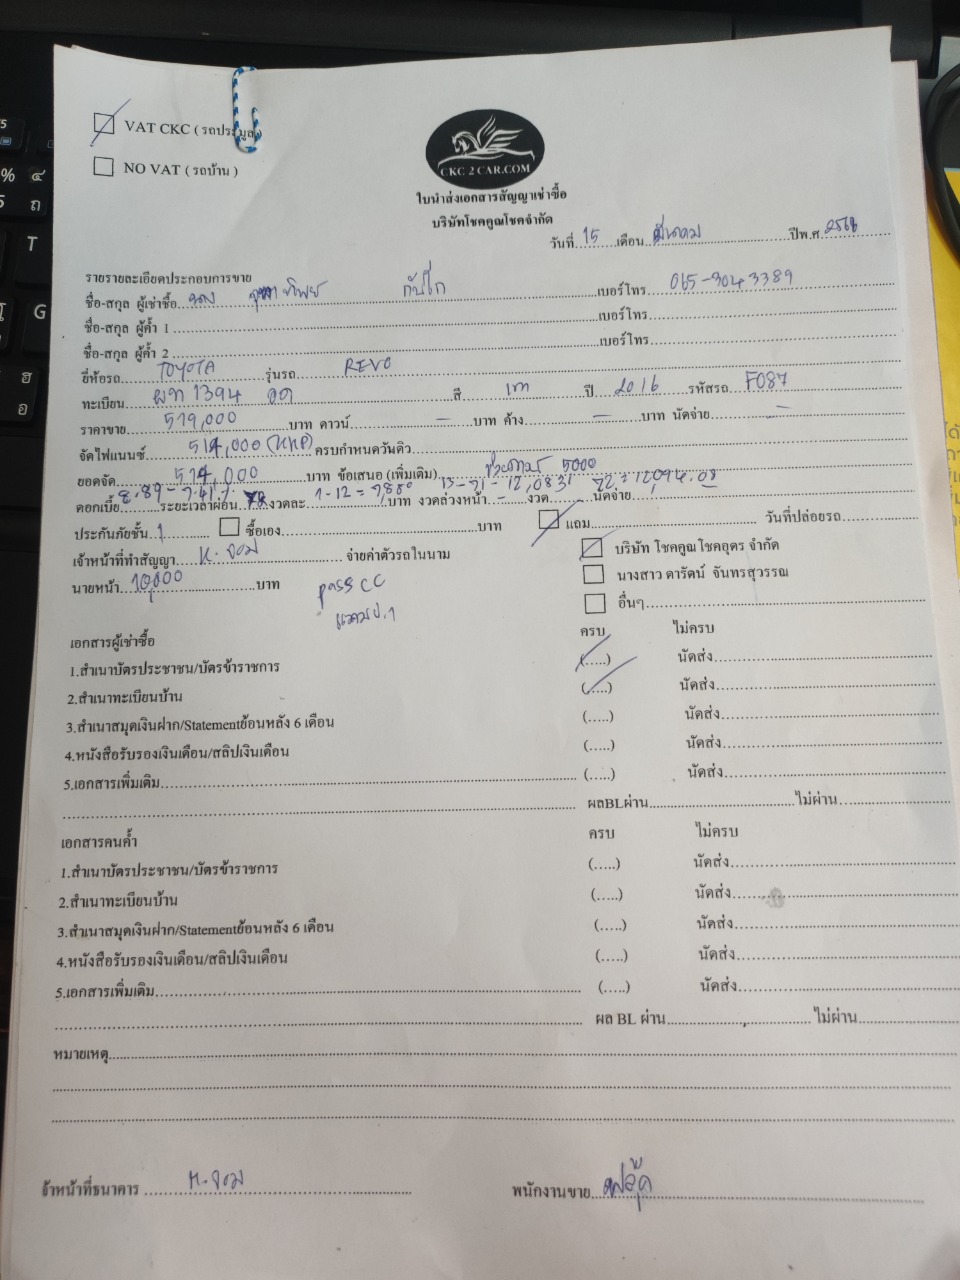 VAT CKC ( รถประมูล )
NO VAT ( รถบ้าน )
CKC 2 CAR.COM
ใบนำส่งเอกสารสัญญาเช่าซื้อ
บริษัทโชคคูณโชคจำกัด
วันที่ 15 เดือน มีนาคม ปีพ.ศ. 2566
รายรายละเอียดประกอบการขาย
ชื่อ-สกุล ผู้เช่าซื้อ นาง ทิพย์ เบอร์โทร 065-3043389
ชื่อ-สกุล ผู้ค้ำ 1 เบอร์โทร
ชื่อ-สกุล ผู้ค้ำ 2 เบอร์โทร
ยี่ห้อรถ TOYOTA รุ่นรถ REVO
ทะเบียน ผท 1394 อด สี เทา ปี 2016 รหัสรถ F087
ราคาขาย 519,000 บาท ดาวน์ - บาท ค้าง - บาท นัดจ่าย -
จัดไฟแนนซ์ 514,000 (KKP) ครบกำหนดวันดิว
ยอดจัด 514,000 บาท ข้อเสนอ (เพิ่มเติม) 5000
13-71 - 12,0831 72 = 12094.08
ดอกเบี้ย 8.89 - 7.41% ระยะเวลาผ่อน 72 งวดละ 1-12 = 9880 บาท งวดล่วงหน้า - งวด นัดจ่าย
ประกันภัยชั้น 1 ซื้อเอง บาท แถม วันที่ปล่อยรถ
เจ้าหน้าที่ทำสัญญา K. จอม จ่ายค่าตัวรถในนาม บริษัท โชคคูณโชคอุดร จำกัด
นายหน้า 10,000 บาท นางสาว ดารัตน์ จันทรสุวรรณ
pass CC
แถมป.1
อื่นๆ
เอกสารผู้เช่าซื้อ ครบ ไม่ครบ
1.สำเนาบัตรประชาชน/บัตรข้าราชการ (.....) นัดส่ง
2.สำเนาทะเบียนบ้าน (.....) นัดส่ง
3.สำเนาสมุดเงินฝาก/Statementย้อนหลัง 6 เดือน (.....) นัดส่ง
4.หนังสือรับรองเงินเดือน/สลิปเงินเดือน (.....) นัดส่ง
5.เอกสารเพิ่มเติม (.....) นัดส่ง
ผลBLผ่าน ไม่ผ่าน
เอกสารคนค้ำ ครบ ไม่ครบ
1.สำเนาบัตรประชาชน/บัตรข้าราชการ (.....) นัดส่ง
2.สำเนาทะเบียนบ้าน (.....) นัดส่ง
3.สำเนาสมุดเงินฝาก/Statementย้อนหลัง 6 เดือน (.....) นัดส่ง
4.หนังสือรับรองเงินเดือน/สลิปเงินเดือน (.....) นัดส่ง
5.เอกสารเพิ่มเติม (.....) นัดส่ง
ผล BL ผ่าน ไม่ผ่าน
หมายเหตุ
จ้าหน้าที่ธนาคาร K. จอม พนักงานขาย ฟลุ๊ค